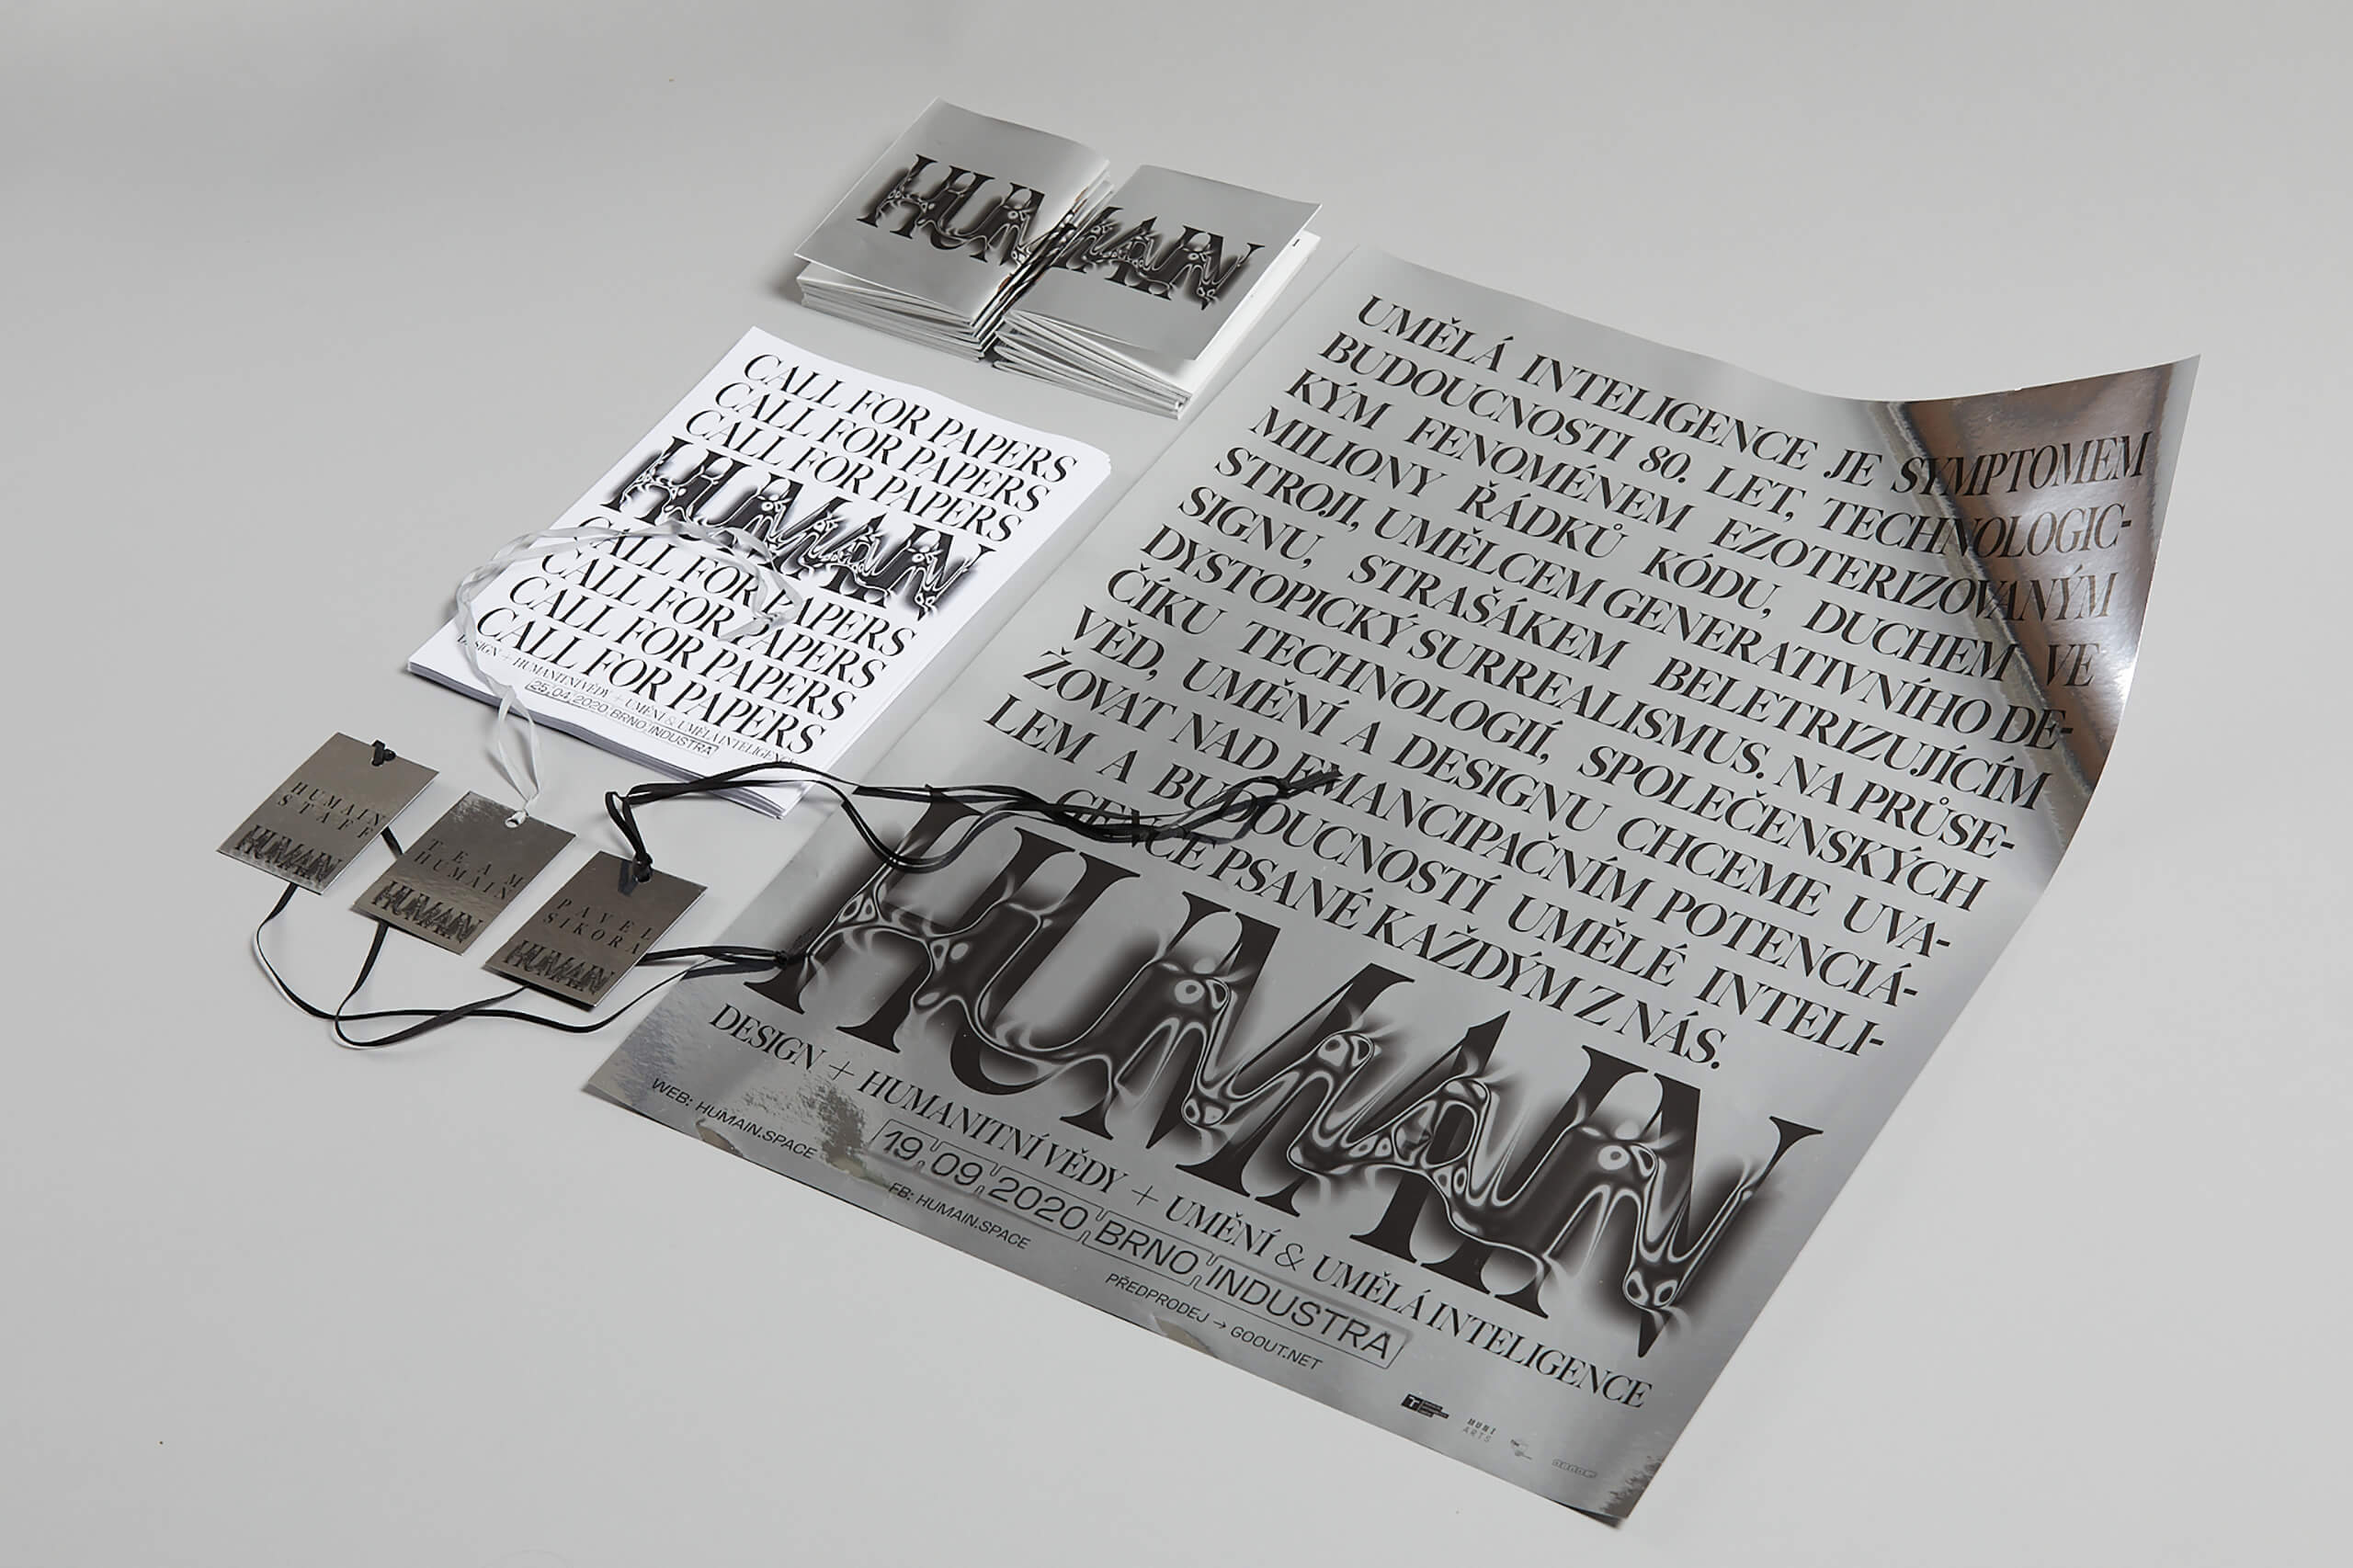 HUMAIN
CALL FOR PAPERS
CALL FOR PAPERS
CALL FOR PAPERS
HUMAIN
CALL FOR PAPERS
CALL FOR PAPERS
CALL FOR PAPERS
CALL FOR PAPERS
DESIGN + HUMANITNÍ VĚDY + UMĚNÍ & UMĚLÁ INTELIGENCE
25.04.2020 BRNO, INDUSTRA
HUMAIN
STAFF
HUMAIN
TEAM
HUMAIN
HUMAIN
PAVEL
SIKORA
HUMAIN
UMĚLÁ INTELIGENCE JE SYMPTOMEM
BUDOUCNOSTI 80. LET, TECHNOLOGIC-
KÝM FENOMÉNEM EZOTERIZOVANÝM
MILIONY ŘÁDKŮ KÓDU, DUCHEM VE
STROJI, UMĚLCEM GENERATIVNÍHO DE-
SIGNU, STRAŠÁKEM BELETRIZUJÍCÍM
DYSTOPICKÝ SURREALISMUS. NA PRŮSE-
ČÍKU TECHNOLOGIÍ, SPOLEČENSKÝCH
VĚD, UMĚNÍ A DESIGNU CHCEME UVA-
ŽOVAT NAD EMANCIPAČNÍM POTENCIÁ-
LEM A BUDOUCNOSTÍ UMĚLÉ INTELI-
GENCE PSANÉ KAŽDÝM Z NÁS.
HUMAIN
DESIGN + HUMANITNÍ VĚDY + UMĚNÍ & UMĚLÁ INTELIGENCE
19.09.2020 BRNO, INDUSTRA
WEB: HUMAIN.SPACE
FB: HUMAIN.SPACE
PŘEDPRODEJ → GOOUT.NET
MUNI
ARTS